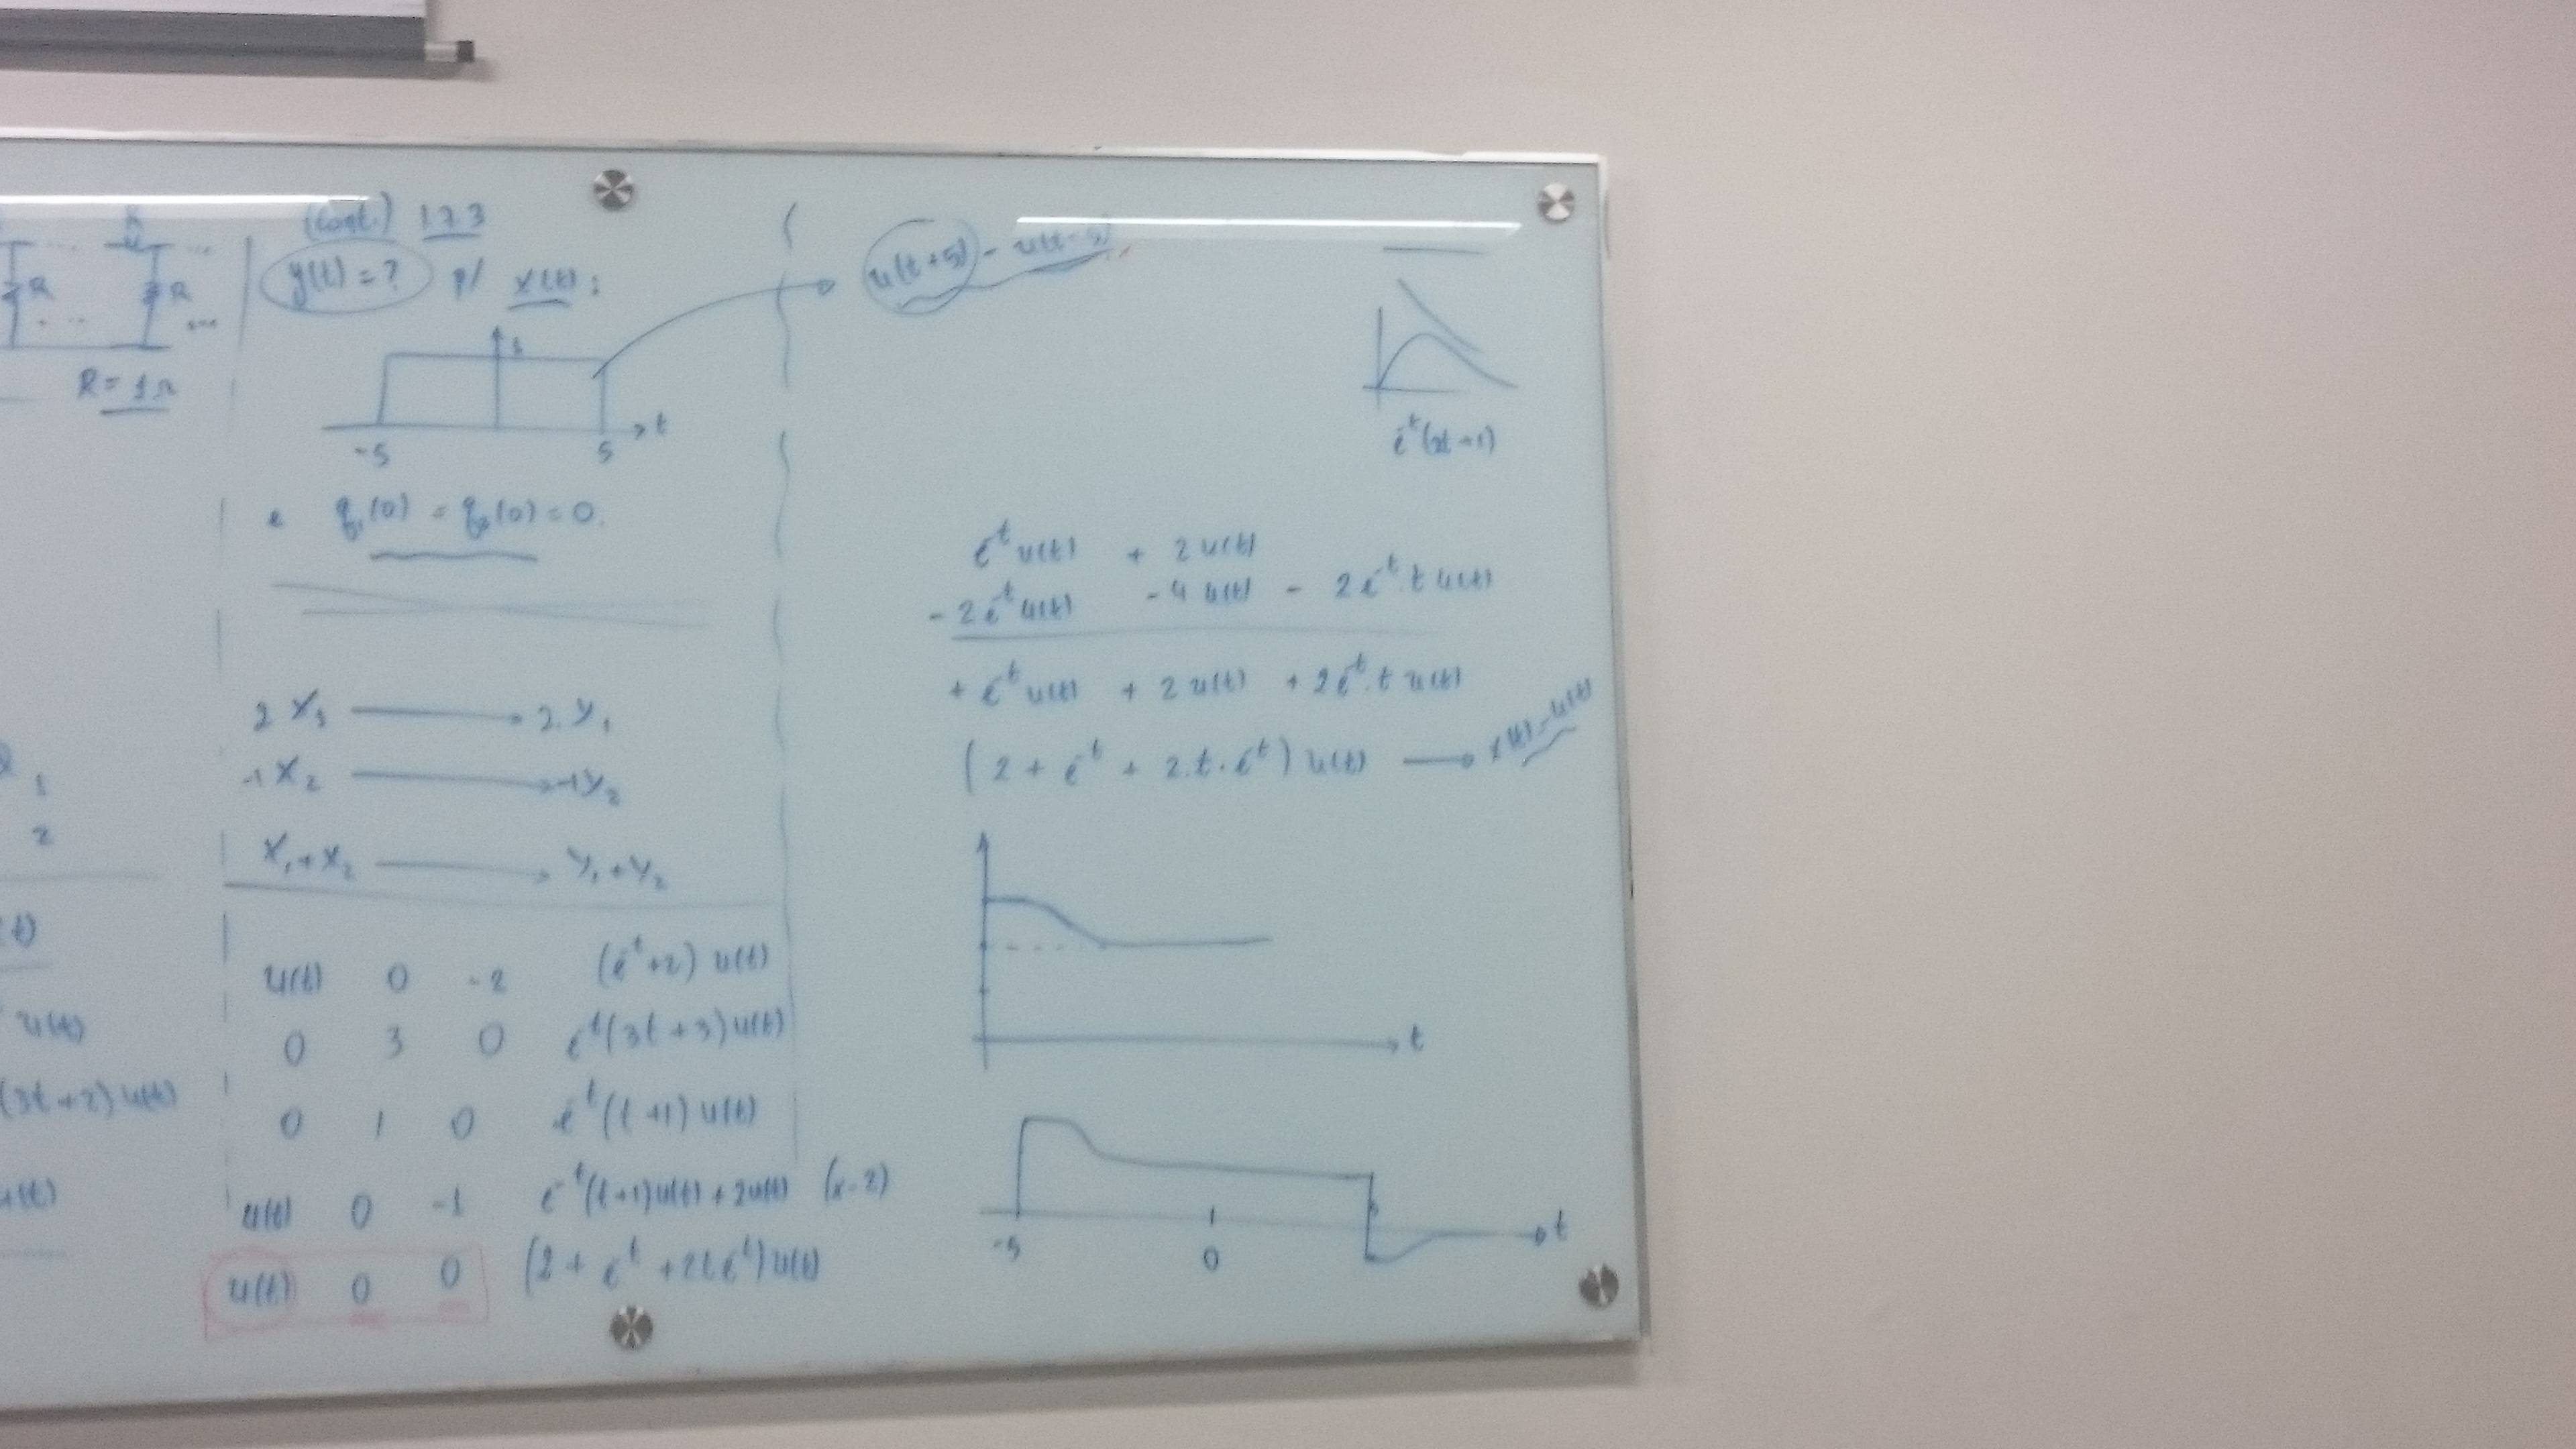 R
R
R = 1Ω
1
2
(t)
u(t)
(3t+2) u(t)
u(t)
(Cont.) 1.7.3
y(t) = ? p/ x(t) :
1
t
-5 5
e q₁(0) = q₂(0) = 0.
2 X₁ ⟶ 2. Y₁
-1 X₂ ⟶ -1 Y₂
X₁ + X₂ ⟶ Y₁ + Y₂
u(t) 0 -2 (e⁻ᵗ+2) u(t)
0 3 0 e⁻ᵗ(3t+3) u(t)
0 1 0 e⁻ᵗ(t+1) u(t)
u(t) 0 -1 e⁻ᵗ(t+1)u(t) + 2u(t) (x-2)
u(t) 0 0 (2 + e⁻ᵗ + 2te⁻ᵗ)u(t)
u(t+5) - u(t-5)
e⁻ᵗ(2t+1)
e⁻ᵗ u(t) + 2 u(t)
- 2e⁻ᵗ u(t) - 4 u(t) - 2e⁻ᵗ.t u(t)
+ e⁻ᵗ u(t) + 2 u(t) + 2e⁻ᵗ.t u(t)
(2 + e⁻ᵗ + 2.t.e⁻ᵗ) u(t) ⟶ x(t) = u(t)
t
t
-5 0